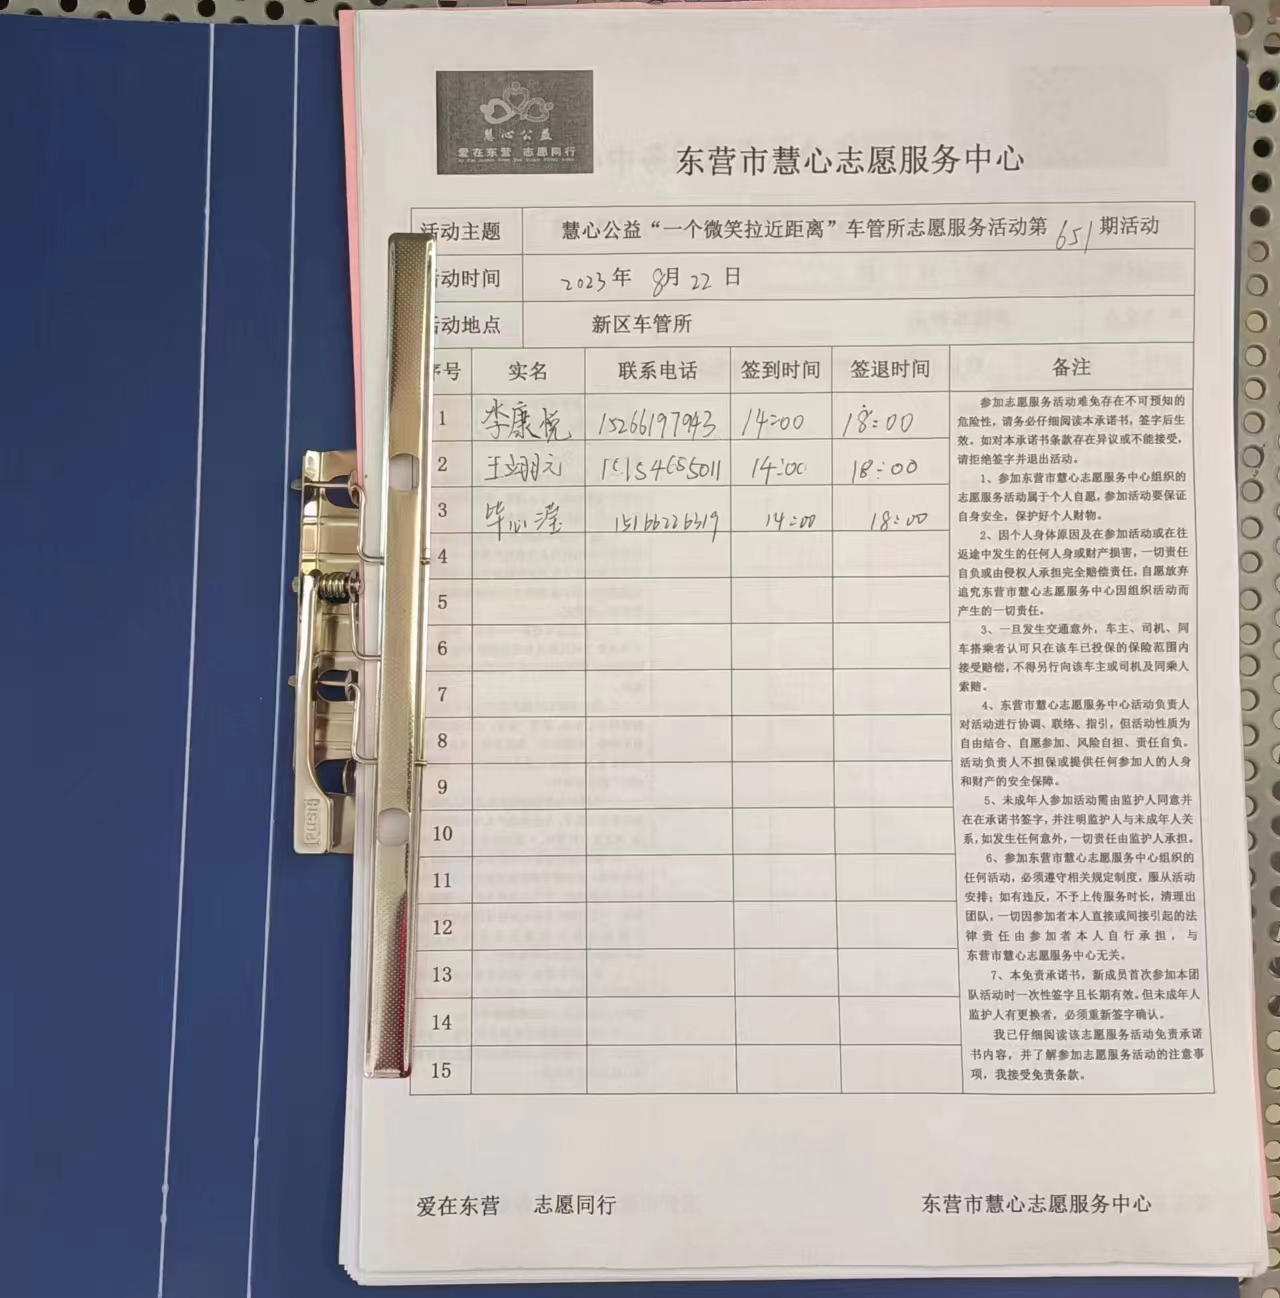 慧心公益
爱在东营 志愿同行
东营市慧心志愿服务中心
活动主题 慧心公益“一个微笑拉近距离”车管所志愿服务活动第651期活动
活动时间 2023年 8月22日
活动地点 新区车管所
序号 实名 联系电话 签到时间 签退时间 备注
1 李康悦 15266197943 14:00 18:00
2 王翊元 14:00 18:00
3 毕心滢 15166226319 14:00 18:00
4
5
6
7
8
9
10
11
12
13
14
15
参加志愿服务活动难免存在不可预知的
危险性，请务必仔细阅读本承诺书，签字后生
效。如对本承诺书条款存在异议或不能接受，
请拒绝签字并退出活动。
1、参加东营市慧心志愿服务中心组织的
志愿服务活动属于个人自愿，参加活动要保证
自身安全，保护好个人财物。
2、因个人身体原因及在参加活动或在往
返途中发生的任何人身或财产损害，一切责任
自负或由侵权人承担完全赔偿责任，自愿放弃
追究东营市慧心志愿服务中心因组织活动而
产生的一切责任。
3、一旦发生交通意外，车主、司机、同
车搭乘者认可只在该车已投保的保险范围内
接受赔偿，不得另行向该车主或司机及同乘人
索赔。
4、东营市慧心志愿服务中心活动负责人
对活动进行协调、联络、指引，但活动性质为
自由结合、自愿参加、风险自担、责任自负。
活动负责人不担保或提供任何参加人的人身
和财产的安全保障。
5、未成年人参加活动需由监护人同意并
在在承诺书签字，并注明监护人与未成年人关
系，如发生任何意外，一切责任由监护人承担。
6、参加东营市慧心志愿服务中心组织的
任何活动，必须遵守相关规定制度，服从活动
安排；如有违反，不予上传服务时长，清理出
团队，一切因参加者本人直接或间接引起的法
律责任由参加者本人自行承担，与
东营市慧心志愿服务中心无关。
7、本免责承诺书，新成员首次参加本团
队活动时一次性签字且长期有效。但未成年人
监护人有更换者，必须重新签字确认。
我已仔细阅读该志愿服务活动免责承诺
书内容，并了解参加志愿服务活动的注意事
项，我接受免责条款。
爱在东营 志愿同行 东营市慧心志愿服务中心